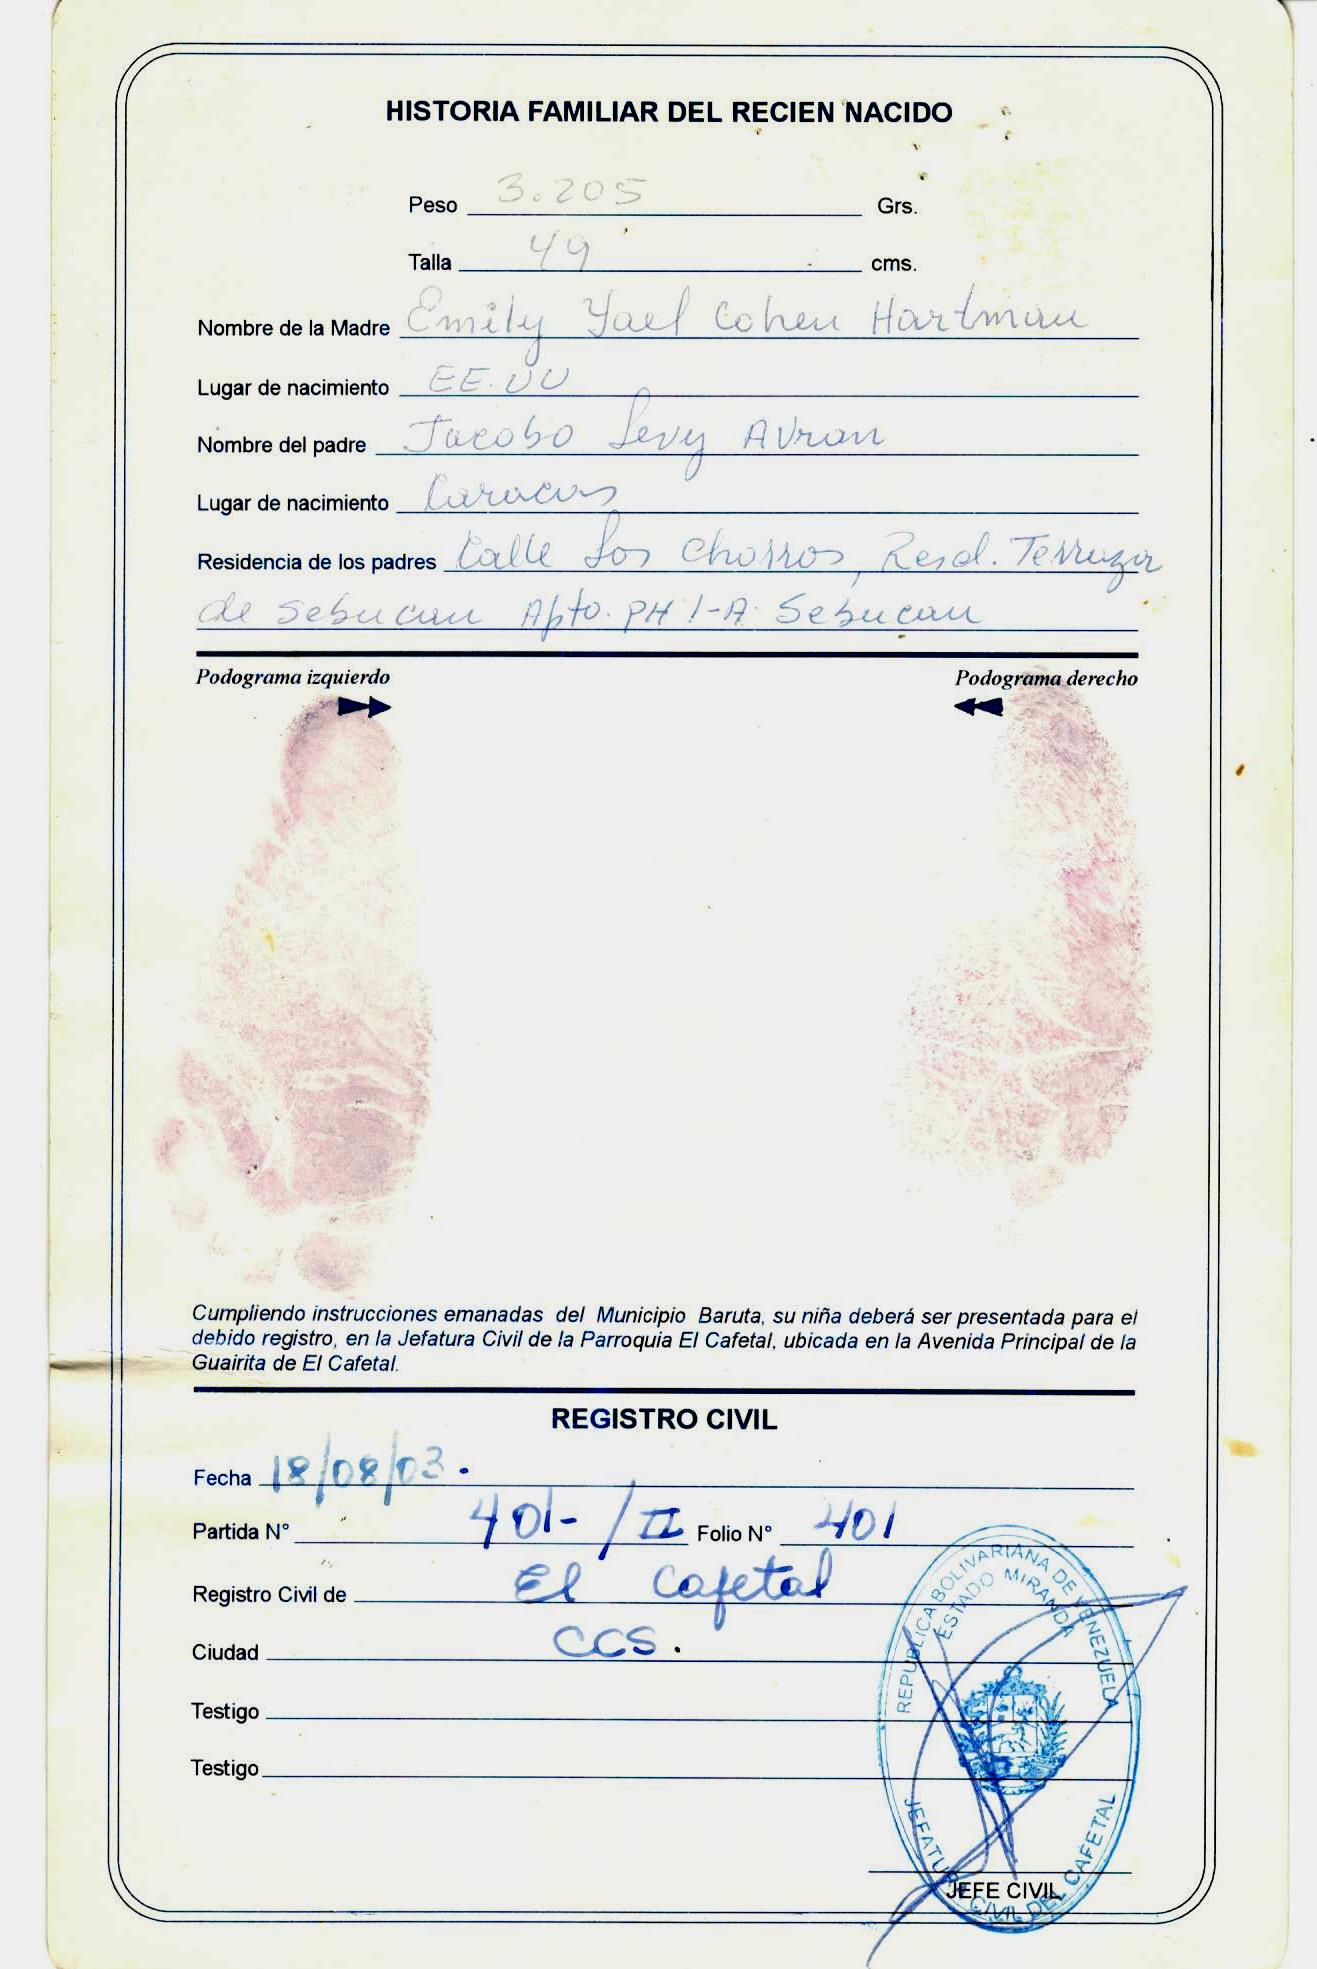 HISTORIA FAMILIAR DEL RECIEN NACIDO
Peso 3.205 Grs.
Talla 49 cms.
Nombre de la Madre Emily Yael Cohen Hartman
Lugar de nacimiento EE.UU
Nombre del padre Jacobo Levy Avran
Lugar de nacimiento Caracas
Residencia de los padres Calle Los Chorros, Resd. Terrazas
de Sebucan Apto. PH 1-A. Sebucan
Podograma izquierdo Podograma derecho
Cumpliendo instrucciones emanadas del Municipio Baruta, su niña deberá ser presentada para el
debido registro, en la Jefatura Civil de la Parroquia El Cafetal, ubicada en la Avenida Principal de la
Guairita de El Cafetal.
REGISTRO CIVIL
Fecha 18/08/03.
Partida N° 401-/II Folio N° 401
Registro Civil de El Cafetal
Ciudad CCS.
Testigo
Testigo
REPUBLICA BOLIVARIANA DE VENEZUELA
ESTADO MIRANDA
JEFATURA CIVIL DEL CAFETAL
JEFE CIVIL